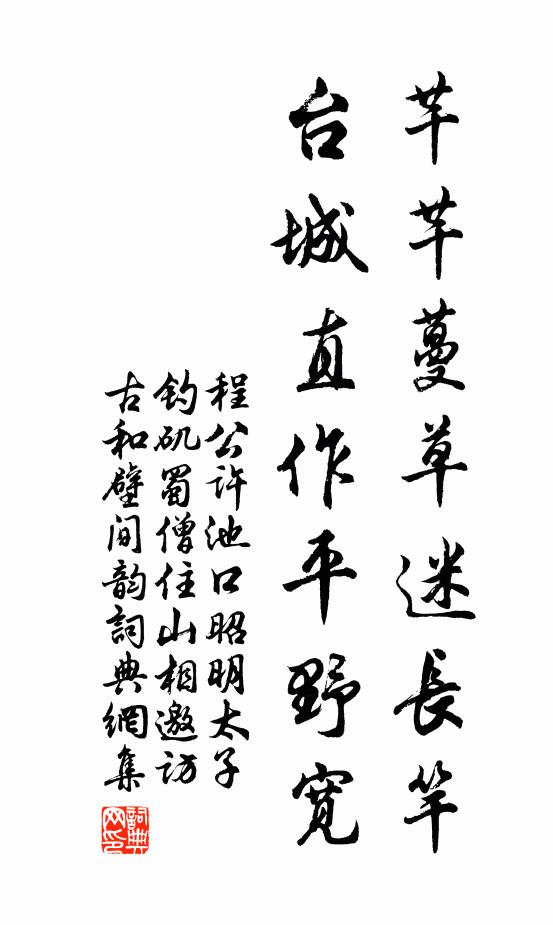 芊芊蔓草迷長竿
台城直作平野寬
程公許池口昭明太子
釣磯蜀僧住山相邀訪
古和壁間韵詞典網集
詞典网印